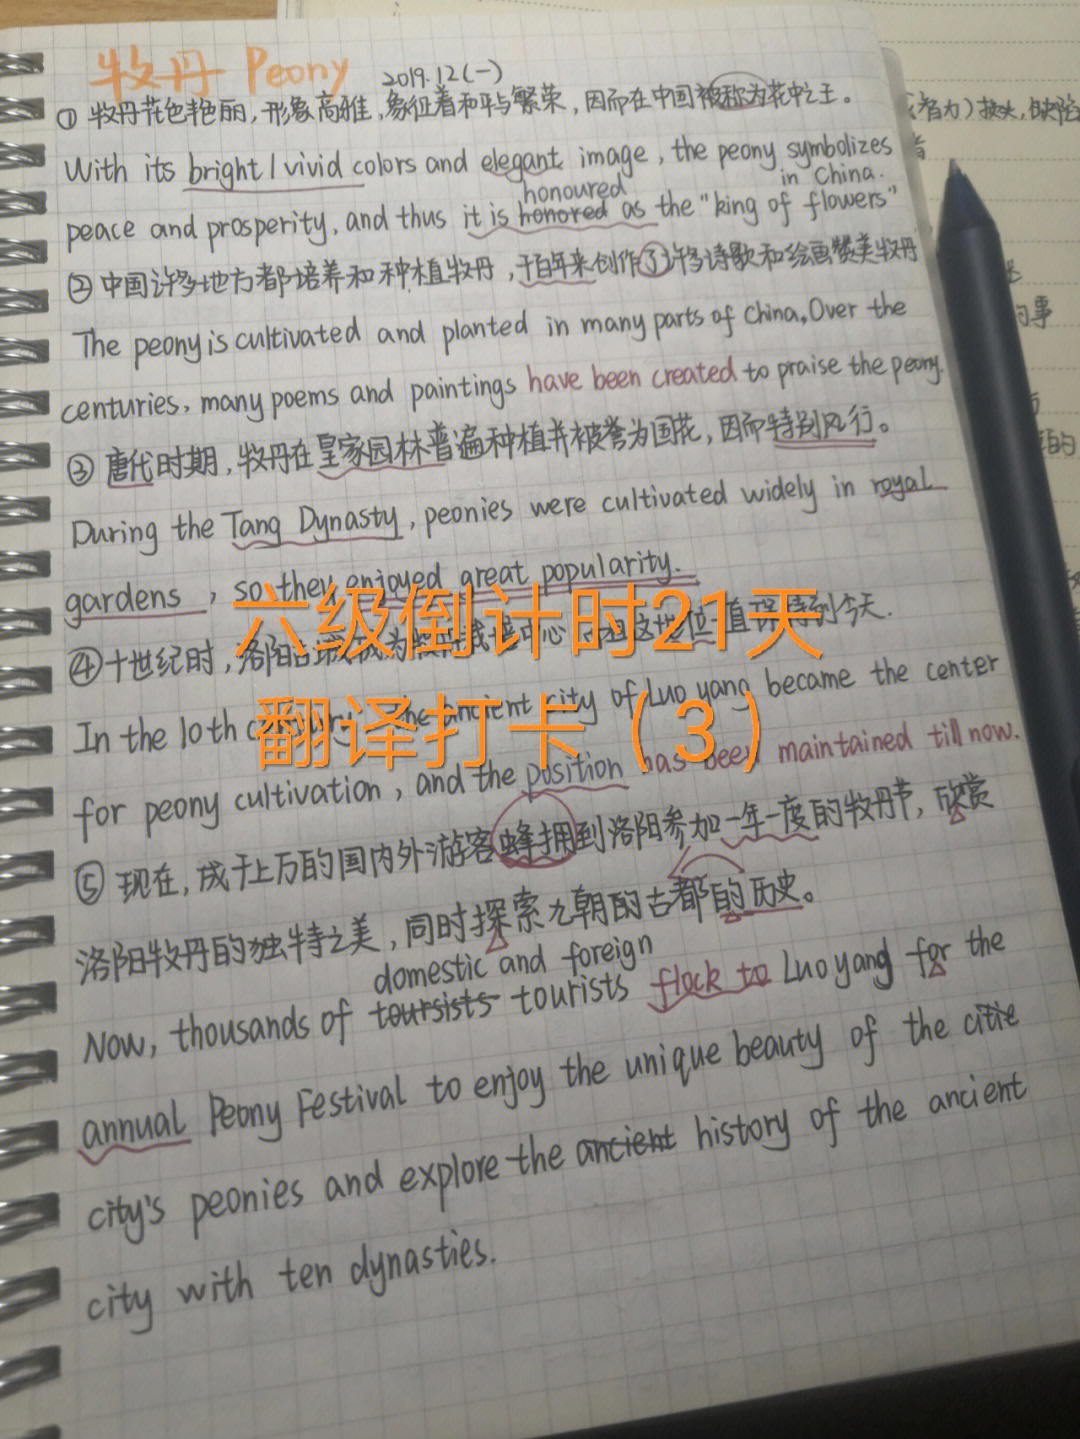 牡丹 Peony 2019.12(一)
① 牡丹花色艳丽，形象高雅，象征着和平与繁荣，因而在中国被称为花中之王。
With its bright / vivid colors and elegant image, the peony symbolizes
honoured in China.
peace and prosperity, and thus it is honored as the "king of flowers"
② 中国许多地方都培养和种植牡丹，千百年来创作了许多诗歌和绘画赞美牡丹
The peony is cultivated and planted in many parts of China, Over the
centuries, many poems and paintings have been created to praise the peony.
③ 唐代时期，牡丹在皇家园林普遍种植并被誉为国花，因而特别风行。
During the Tang Dynasty, peonies were cultivated widely in royal
gardens, so they enjoyed great popularity.
六级倒计时21天
④ 十世纪时，洛阳古城成为牡丹栽培中心 地位一直保持到今天.
In the 10th the ancient city of Luo yang became the center
翻译打卡（3）
for peony cultivation, and the position has been maintained till now.
⑤ 现在，成千上万的国内外游客蜂拥到洛阳参加一年一度的牡丹节，欣赏
洛阳牡丹的独特之美，同时探索九朝的古都的历史。
domestic and foreign
Now, thousands of toursists tourists flock to Luo yang for the
annual Peony Festival to enjoy the unique beauty of the citie
city's peonies and explore the ancient history of the ancient
city with ten dynasties.
智力）
的事
的